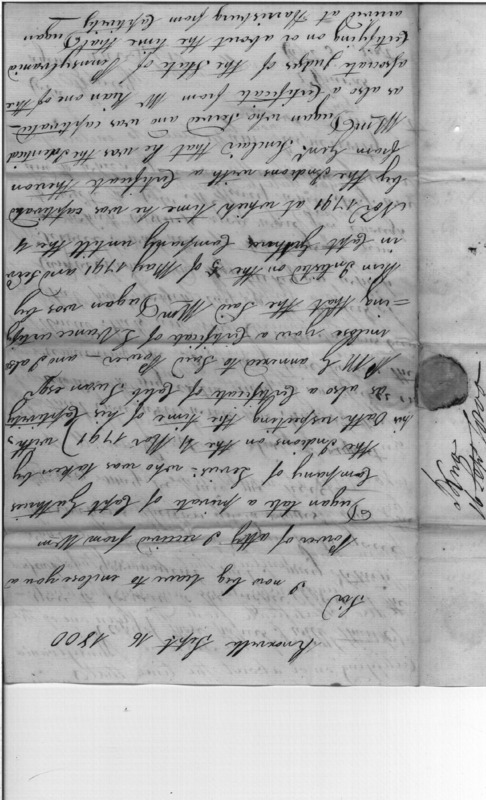 Knoxville Sept 16 1800
Sir
I now beg leave to enclose you a
Power of atty I received from Wm
Dugan late a private of Capt
Company of Levies who was taken by
the Indians on the 4 Nov 1791 with
his Oath respecting the time of his Captivity
as also a Certificate of Coln esqr
annexed to Said Power - and I also
inclose you a Certificate of
=ing that the Said Wm Dugan was by
him Inlisted on the of May 1791 and Serv
in Capt Company untill the 4
Nov 1791 at which time he was captivated
by the Indians with a Certificate thereon
from Genl. Sinclair that he was the Identical
Wm Dugan who served and was captivated -
as also a Certificate from Mr Kean one of the
associate Judges of the State of Pennsylvania
Certifying on or about the time that Dugan
arrived at Harrisburg from Captivity